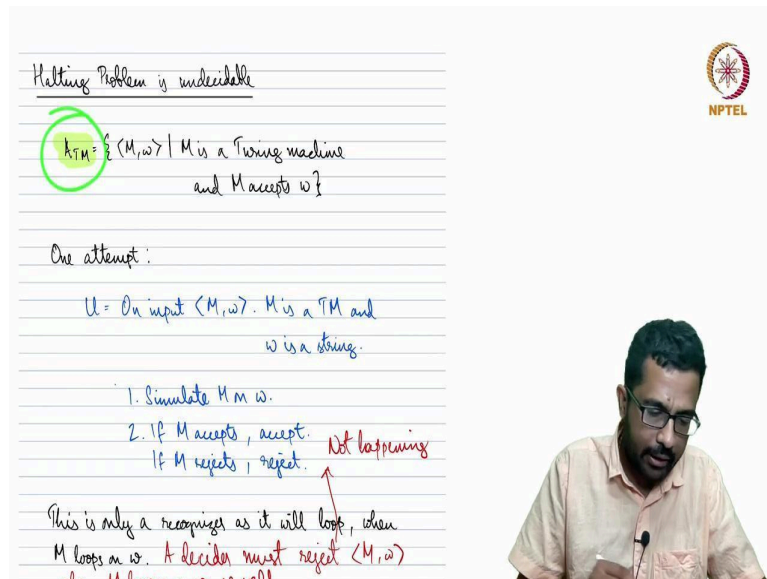 Halting Problem is undecidable
NPTEL
A_TM = { <M, w> | M is a Turing machine
and M accepts w }
One attempt :
U = On input <M, w>. M is a TM and
w is a string.
1. Simulate M on w.
2. If M accepts, accept.
If M rejects, reject.
Not happening
This is only a recognizer as it will loop, when
M loops on w. A decider must reject <M, w>